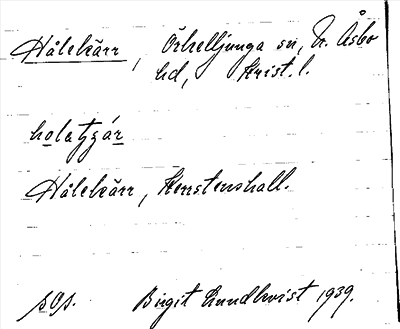 Hålekärr, Örkelljunga sn, N. Åsbo
hd, Krist. l.
Hålekärr,
Birgit Lundkvist 1939.